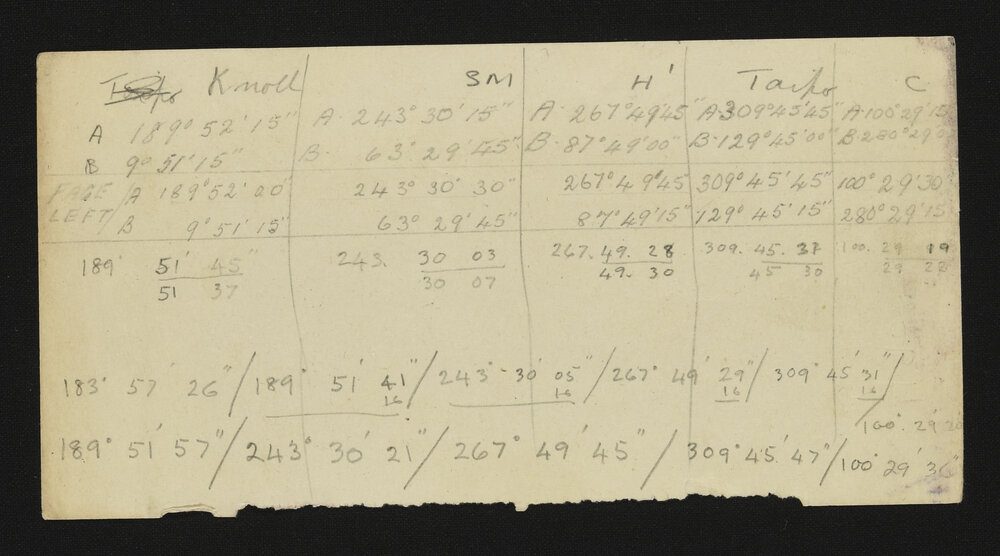 Knoll BM H' Taipo C
A 189° 52' 15" A. 243° 30' 15" A. 267° 49' 45" A 309° 45' 45" A 100° 29' 15
B 9° 51' 15" B. 63° 29' 45" B. 87° 49' 00" B. 129° 45' 00" B. 280° 29'
FACE LEFT A 189° 52' 00" 243° 30' 30" 267° 49' 45 309° 45' 45" 100° 29' 30
B 9° 51' 15" 63° 29' 45" 87° 49' 15" 129° 45' 15" 280° 29' 15
189° 51' 45" 243. 30 03 267. 49. 28 309. 45. 37 100. 29 19
51 37 30 07 49. 30 45 30 29
183° 57' 26" / 189° 51' 41" / 243° 30' 05" / 267° 49' 29" / 309° 45' 31" /
16 16 16 16
100° 29'
189° 51' 57" / 243° 30' 21" / 267° 49' 45" / 309° 45' 47" / 100° 29' 36"